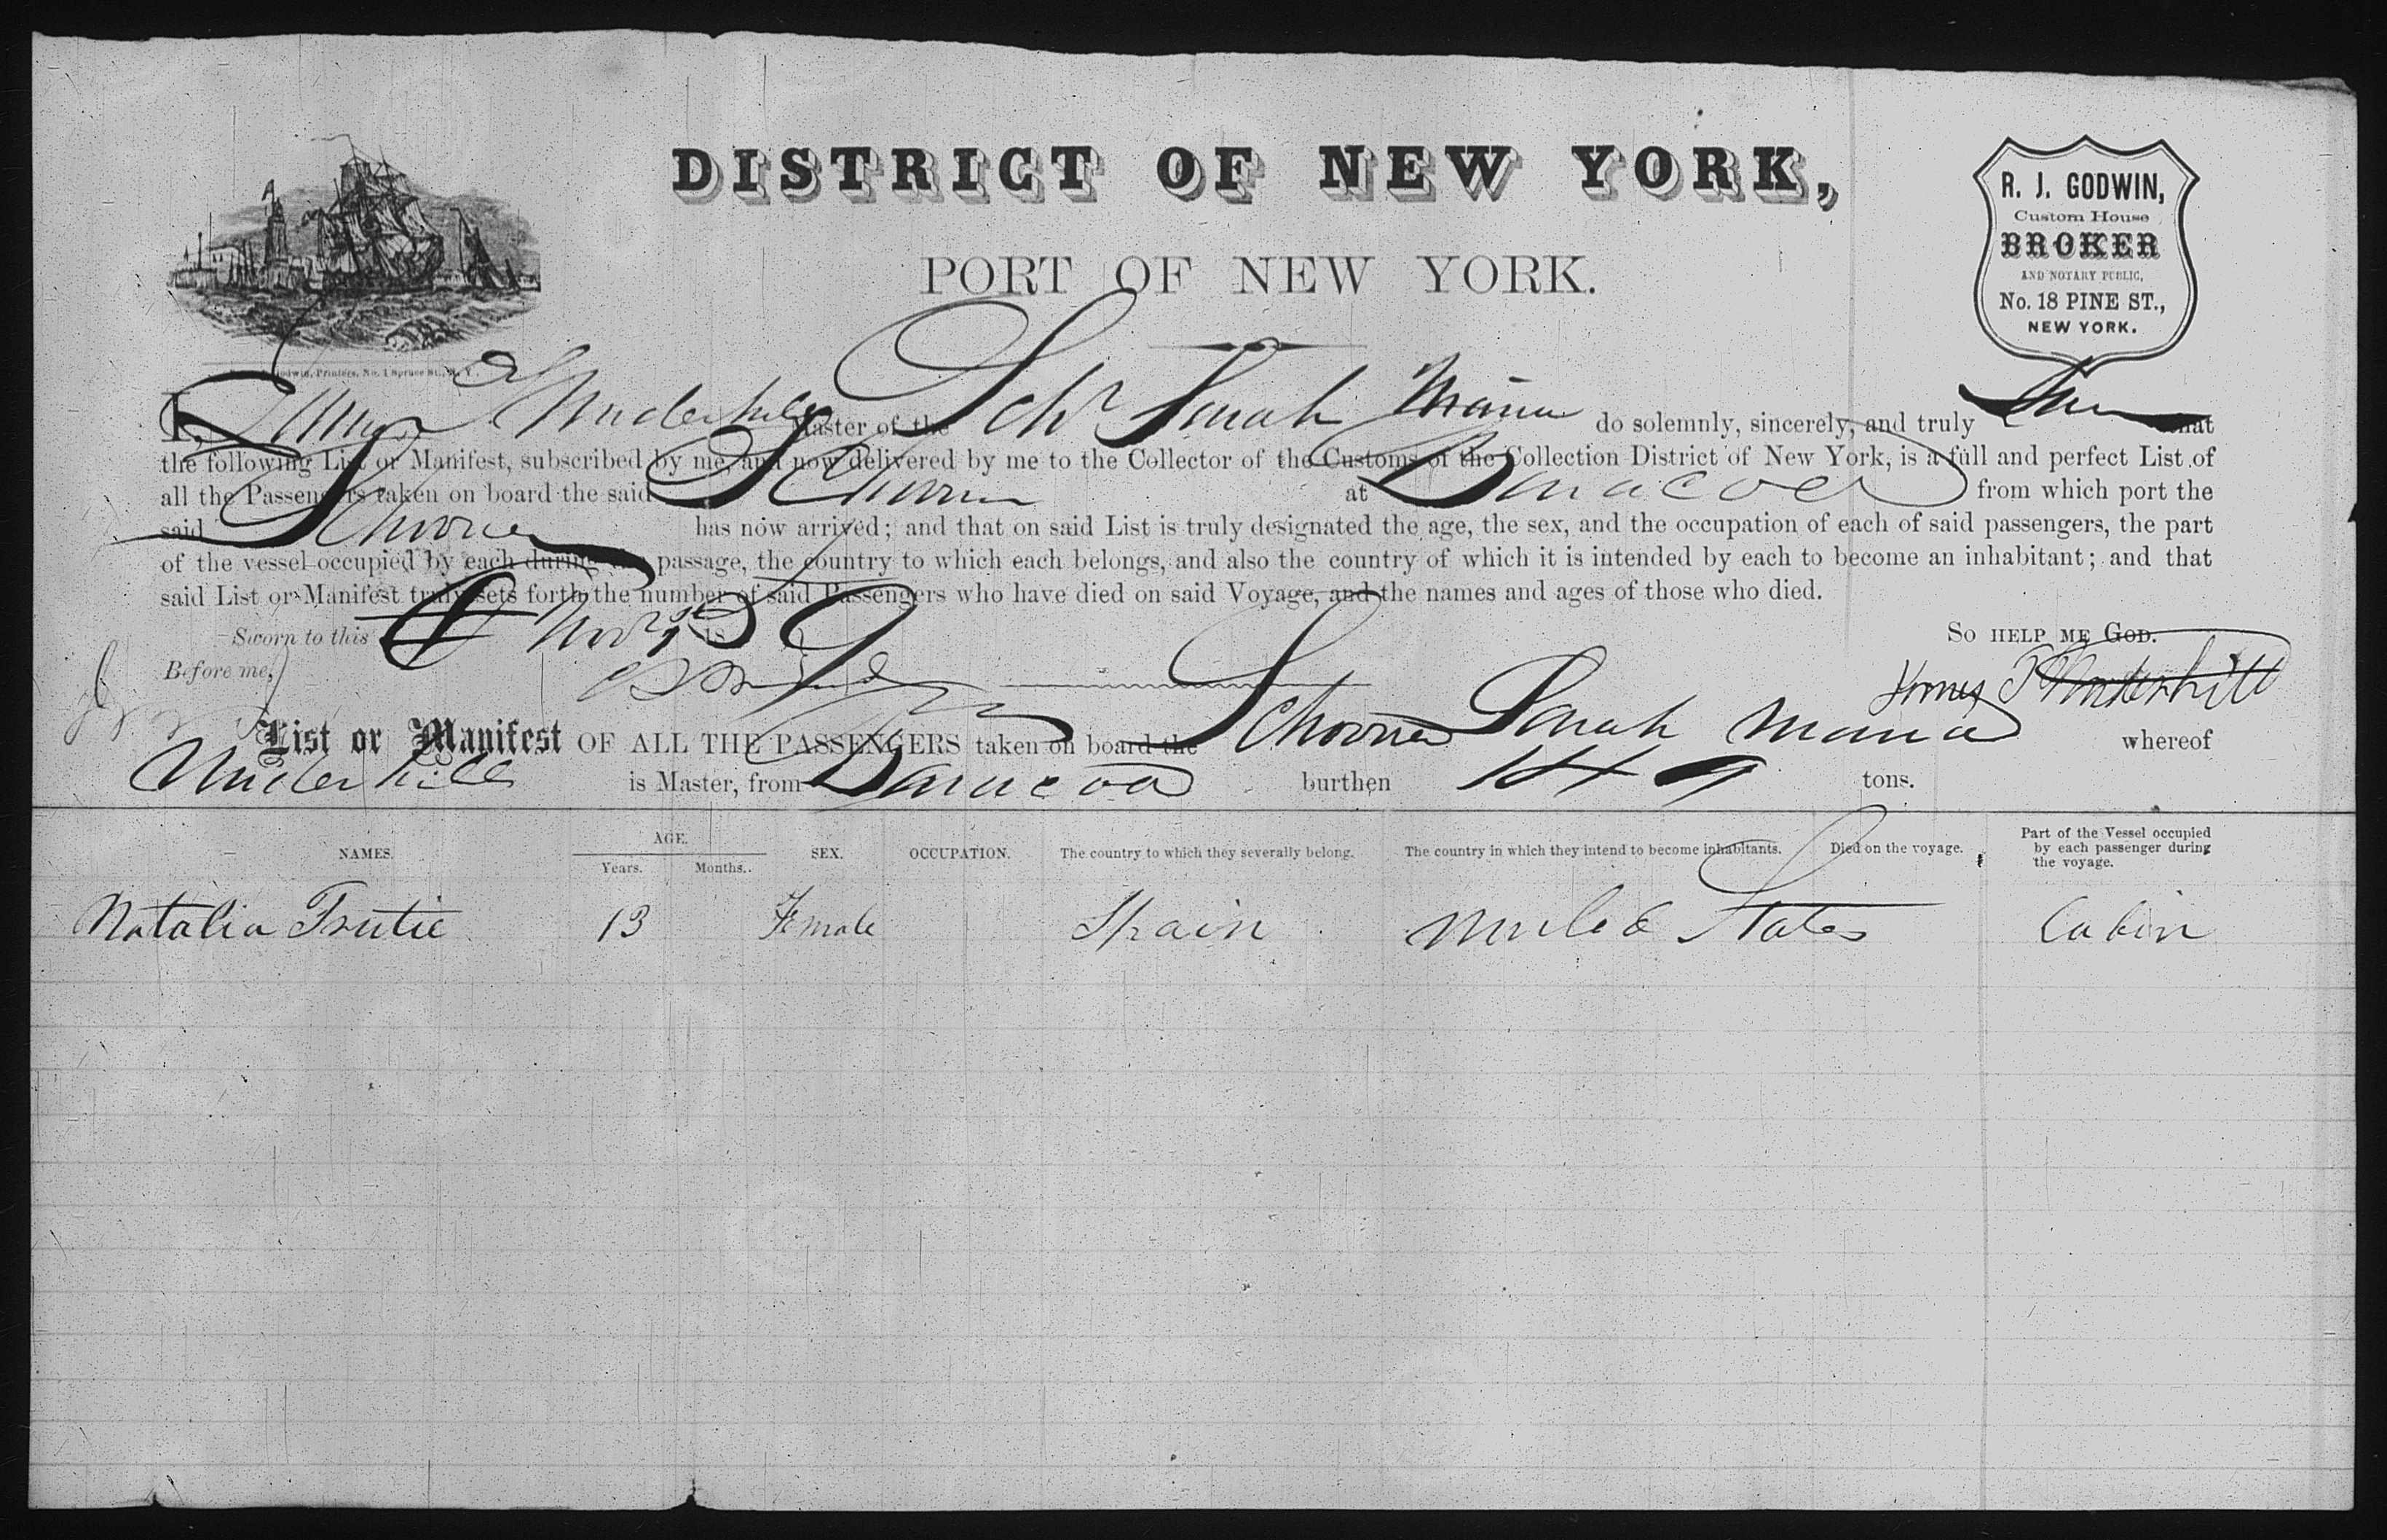 DISTRICT OF NEW YORK,
PORT OF NEW YORK.
R. J. GODWIN,
Custom House
BROKER
AND NOTARY PUBLIC,
No. 18 PINE ST.,
NEW YORK.
Godwin, Printers, No. 1 Spruce St., N. Y.
I, Underhill Master of the Schr Sarah Maria do solemnly, sincerely, and truly that
the following List or Manifest, subscribed by me, and now delivered by me to the Collector of the Customs of the Collection District of New York, is a full and perfect List of
all the Passengers taken on board the said Schooner at Baracoa from which port the
said Schooner has now arrived; and that on said List is truly designated the age, the sex, and the occupation of each of said passengers, the part
of the vessel occupied by each during the passage, the country to which each belongs, and also the country of which it is intended by each to become an inhabitant; and that
said List or Manifest truly sets forth the number of said Passengers who have died on said Voyage, and the names and ages of those who died.
Sworn to this Novr 18 SO HELP ME GOD.
Before me, Underhill
List or Manifest OF ALL THE PASSENGERS taken on board the Schooner Sarah Maria whereof
Underhill is Master, from Baracoa burthen 149 tons.
NAMES. AGE. Years. Months. SEX. OCCUPATION. The country to which they severally belong. The country in which they intend to become inhabitants. Died on the voyage. Part of the Vessel occupied by each passenger during the voyage.
Natalia Frutie 13 Female Spain United States Cabin